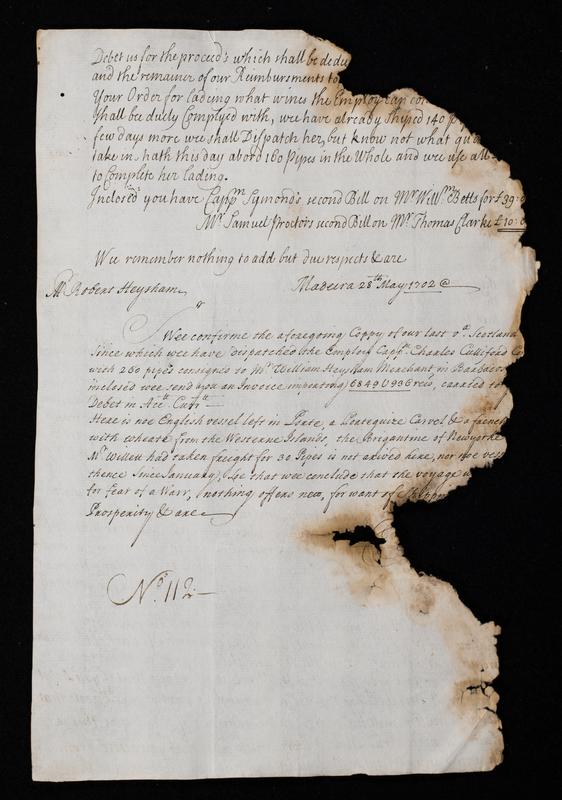 Debet us for the proceeds which shall be dedu
and the remainer of our Reimbursments to
Your Order for lading what wines the Employ can con
Shall be duely Complyed with, we have already Shiped 140 p
few days more we shall Dispatch her, but know not what qua
take in hath this day abord 180 Pipes in the Whole and wee use all
to Complete her lading.
Inclosed you have Capp.n Symonds second Bill on M.r Will.m Betts for £39:0
M.r Samuel Proctors second Bill on M.r Thomas Clarke £10:0
Wee remember nothing to add but due respects & are
M.r Robert Heysham
Madeira 28.th May 1702 @
S.r
Wee confirme the aforegoing Coppy of our last p.r Scotland
Since which wee have dispatched the Employ Capp.n Charles Culliford Co
with 260 pipes consigned to M.r William Heysham Merchant in Barbados
inclosed wee send you an Invoice importing 6849U936 reis, carried to
Debet in Acc.tt Curr.tt
Here is noe English vessel left in Porte, a Porteguize Carvel & a french
with wheate from the Westerne Islands, the Brigantine of Newyorke
M.r Willett had taken freight for 30 Pipes is not arived here, nor noe vess
thence Since January, Soe that wee conclude that the voyage
for fear of a Warr, nothing offers new, for want of Shipp
Prosperity & are
N.o 112